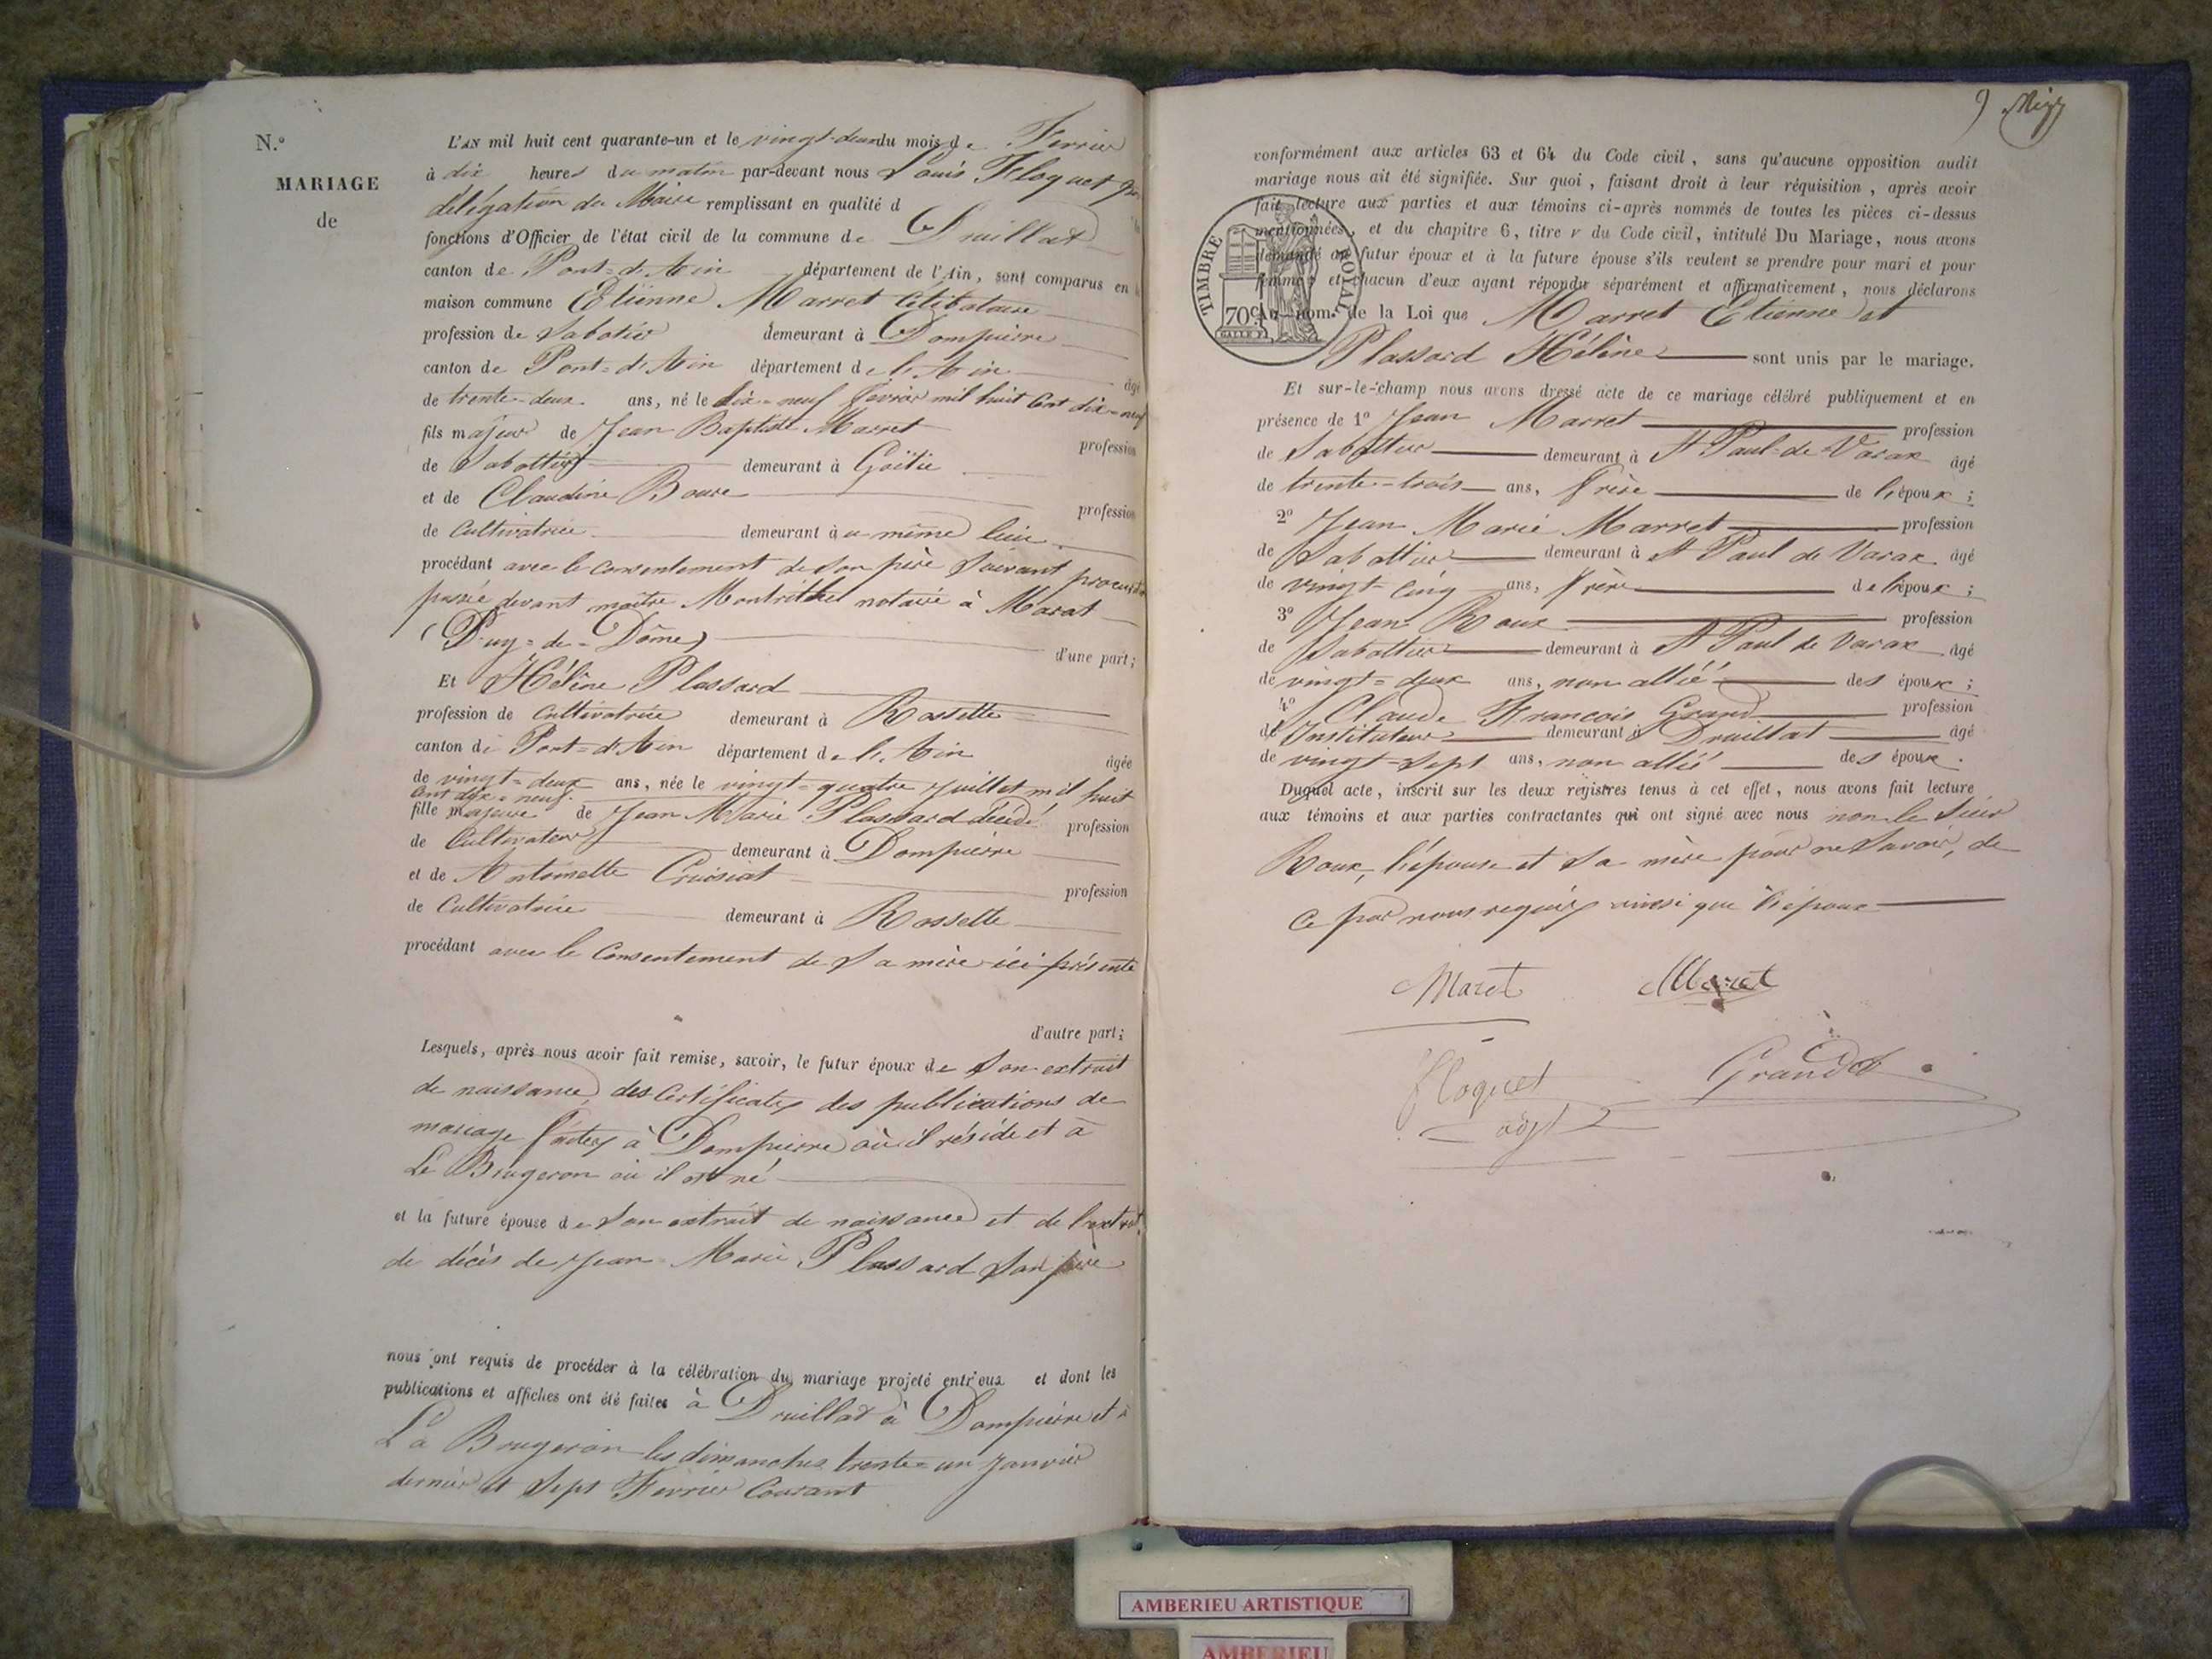 N.º
MARIAGE
de
L'AN mil huit cent quarante-un et le vingt-deux du mois de Fevrier
à dix heures du matin par-devant nous Louis Floquet par
délégation du Maire remplissant en qualité d
fonctions d'Officier de l'état civil de la commune de Druillat
canton de Pont-d'Ain département de l'Ain, sont comparus en
maison commune Etienne Marret Célibataire
profession de Sabotier demeurant à Dompierre
canton de Pont-d'Ain département de l'Ain
âgé
de trente-deux ans, né le dix-neuf fevrier mil huit Cent dix-neuf
fils majeur de Jean Baptiste Marret
profession
de Sabottier demeurant à
et de Claudine
profession
de Cultivatrice demeurant à u même lieu
procédant avec le Consentement de son père Suivant
passée devant maître notaire à Marat
(Puy-de-Dôme)
d'une part;
Et Hélène Plassard
profession de Cultivatrice demeurant à Rossette
canton de Pont-d'Ain département de l'Ain
âgée
de vingt-deux ans, née le vingt-quatre Juillet mil huit
Cent dix-neuf.
fille majeure de Jean Marie Plassard décédé
profession
de Cultivateur demeurant à Dompierre
et de Antoinette Cruisiat
profession
de Cultivatrice demeurant à Rossette
procédant avec le Consentement de Sa mère ici présente
d'autre part;
Lesquels, après nous avoir fait remise, savoir, le futur époux de Son extrait
de naissance, des Certificats des publications de
mariage faites à Dompierre où il réside et à
Le Brugeron où il est né
et la future épouse de Son extrait de naissance et de l'extrait
de décès de Jean Marie Plassard Son père
nous ont requis de procéder à la célébration du mariage projeté entr'eux et dont les
publications et affiches ont été faites à Druillat à Dompierre et à
La Brugeron les dimanches trente-un Janvier
dernier et Sept Fevrier Courant
9
conformément aux articles 63 et 64 du Code civil, sans qu'aucune opposition audit
mariage nous ait été signifiée. Sur quoi, faisant droit à leur réquisition, après avoir
fait lecture aux parties et aux témoins ci-après nommés de toutes les pièces ci-dessus
mentionnées, et du chapitre 6, titre v du Code civil, intitulé Du Mariage, nous avons
demandé au futur époux et à la future épouse s'ils veulent se prendre pour mari et pour
femme; et chacun d'eux ayant répondu séparément et affirmativement, nous déclarons
au nom de la Loi que Marret Etienne et
Plassard Hélène sont unis par le mariage.
TIMBRE ROYAL
70c
Et sur-le-champ nous avons dressé acte de ce mariage célébré publiquement et en
présence de 1º Jean Marret profession
de Sabottier demeurant à St Paul-de-Varax âgé
de trente-trois ans, frère de l'époux;
2º Jean Marie Marret profession
de Sabottier demeurant à St Paul de Varax âgé
de vingt-cinq ans, frère de l'époux;
3º Jean Roux profession
de Sabottier demeurant à St Paul de Varax âgé
de vingt-deux ans, non allié des époux;
4º Claude François Grand profession
de Instituteur demeurant à Druillat âgé
de vingt-sept ans, non allié des époux.
Duquel acte, inscrit sur les deux registres tenus à cet effet, nous avons fait lecture
aux témoins et aux parties contractantes qui ont signé avec nous non le Sieur
Roux, l'épouse et Sa mère pour ne Savoir, de
Ce par nous requis ainsi que l'époux
Maret Maret
Floquet Grand
adjt
AMBERIEU ARTISTIQUE
AMBERIEU